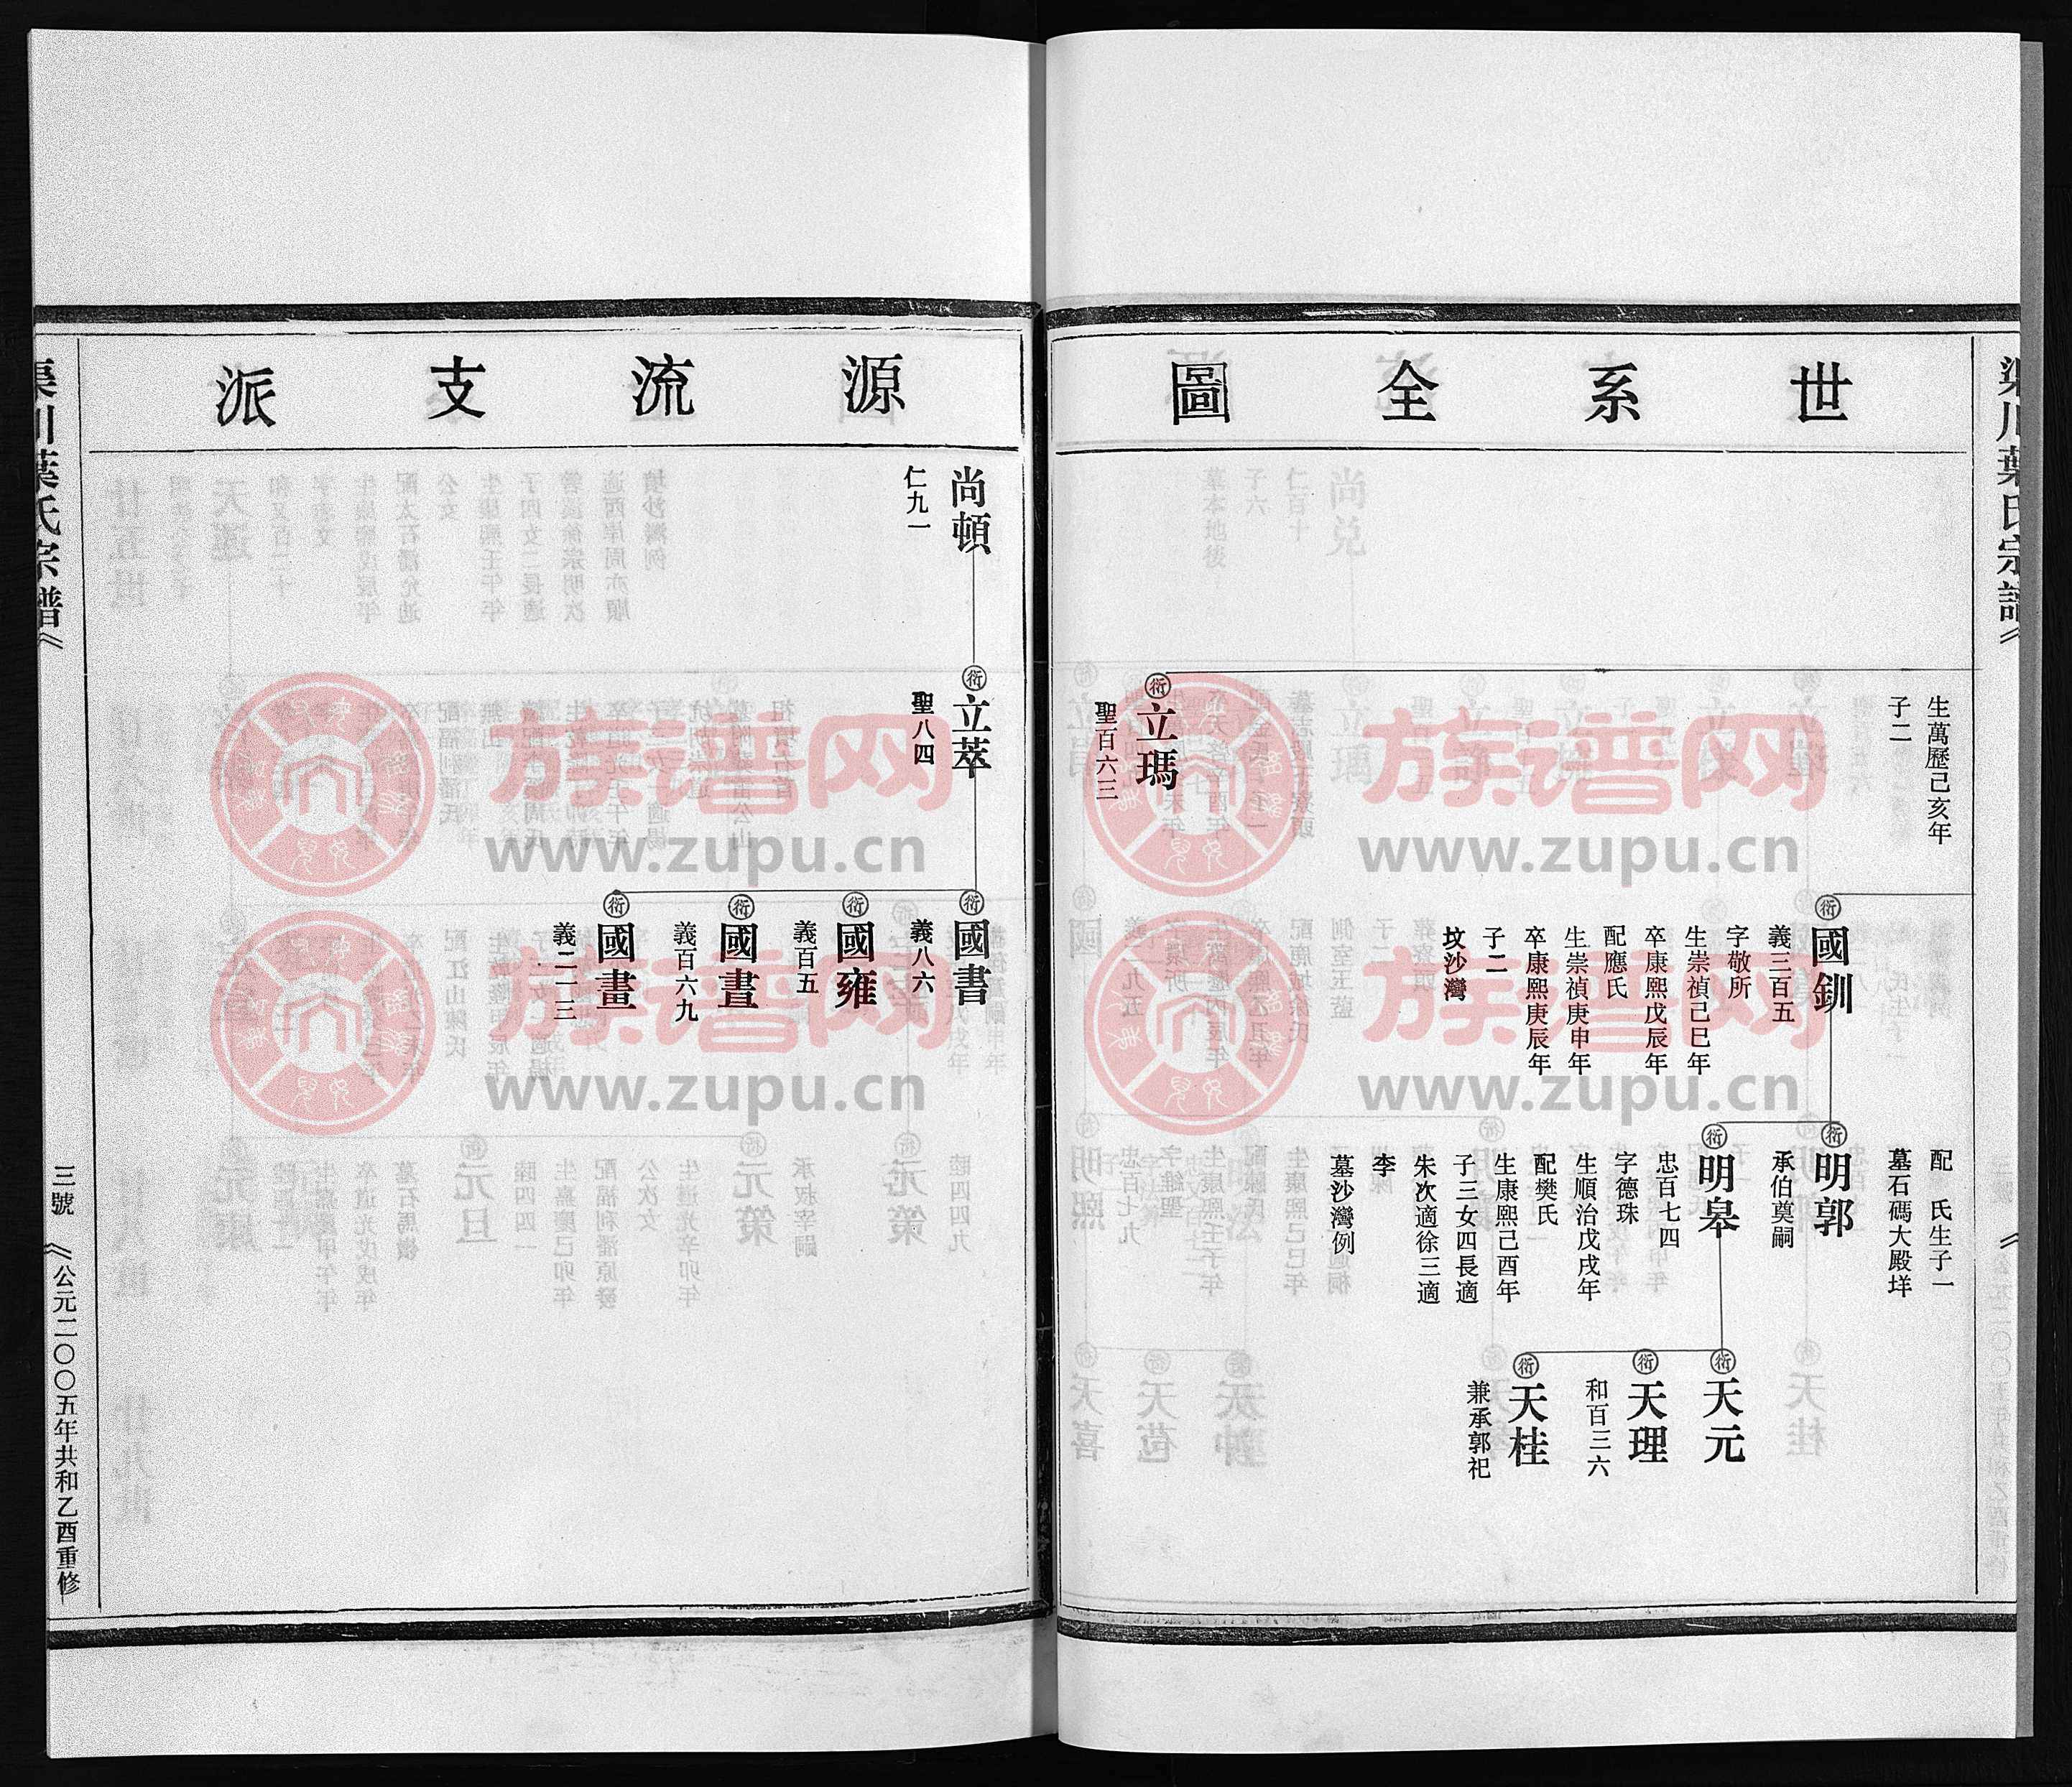 世系全圖
生萬歷己亥年
子二
立瑪
聖百六三
國釧
義三百五
字敬所
生崇禎己巳年
卒康熙戊辰年
配應氏
生崇禎庚申年
卒康熙庚辰年
子二
坟沙灣
配 氏生子一
墓石碼大殿垟
明郭
承伯奠嗣
明皋
忠百七四
字德珠
生順治戊戌年
配樊氏
生康熙己酉年
子三女四長適
朱次適徐三適
李
墓沙灣例
天元
天理
和百三六
天桂
兼承郭祀
源流支派
尚頓
仁九一
立萃
聖八四
國書
義八六
國雍
義百五
國晝
義百六九
國畫
義二一三
葉氏宗譜
三號
公元二〇〇五年共和乙酉重修
族谱网
www.zupu.cn
族谱网
www.zupu.cn
族谱网
www.zupu.cn
族谱网
www.zupu.cn